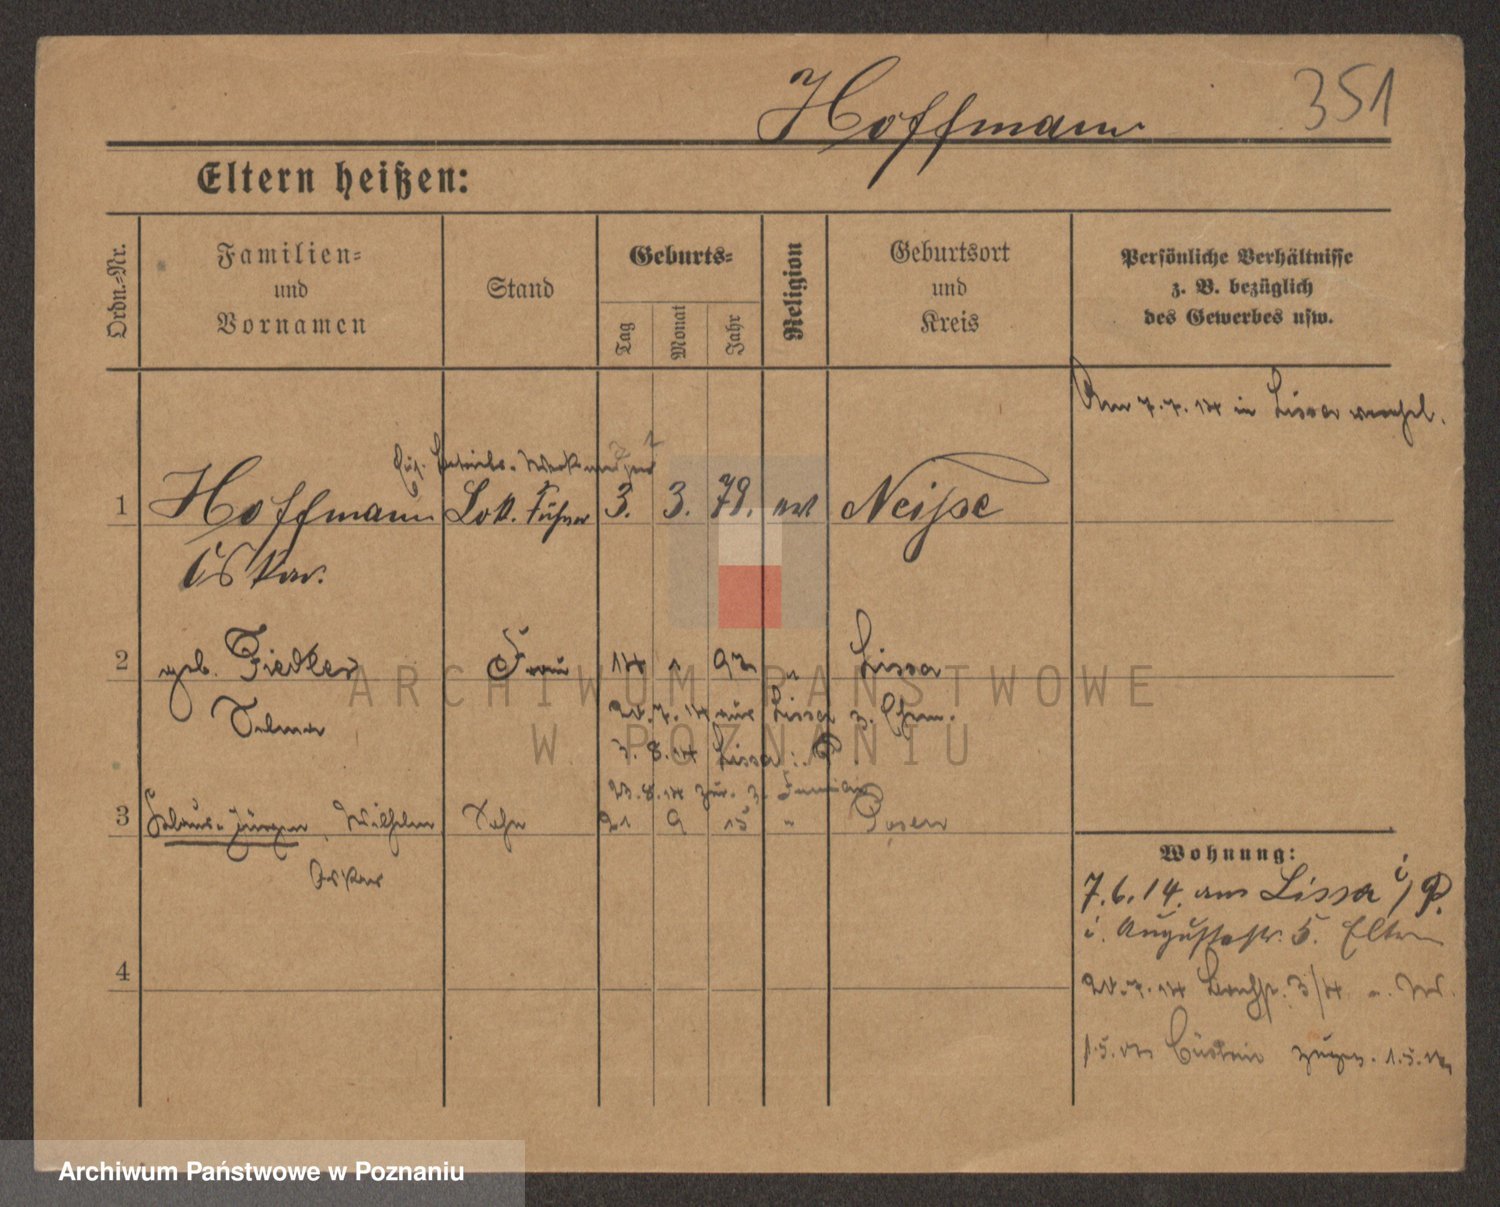 Hoffmann 351
Eltern heißen:
Ordn.-Nr.
Familien-
und
Vornamen
Stand
Geburts-
Tag
Monat
Jahr
Religion
Geburtsort
und
Kreis
Persönliche Verhältnisse
z. B. bezüglich
des Gewerbes usw.
Am 7.7.14 in Lissa
1 Hoffmann Lok. Führer 3. 3. 79. ev Neisse
Oskar.
2 geb. Fiedler Frau 14 1 92 " Lissa
Selma
20.7.14 aus Lissa z. Ehem.
3.8.14 Lissa i. P.
23.8.14 zur. z. Familie
3 Klaus-Jürgen, Wilhelm Sohn 21 9 15 " Posen
Oskar
4
Wohnung:
7.6.14. aus Lissa i/P.
i. Augustastr. 5. Eltern
20.7.14 3/4
1.5. Cüstrin 1.5.
ARCHIWUM PAŃSTWOWE
W POZNANIU
Archiwum Państwowe w Poznaniu